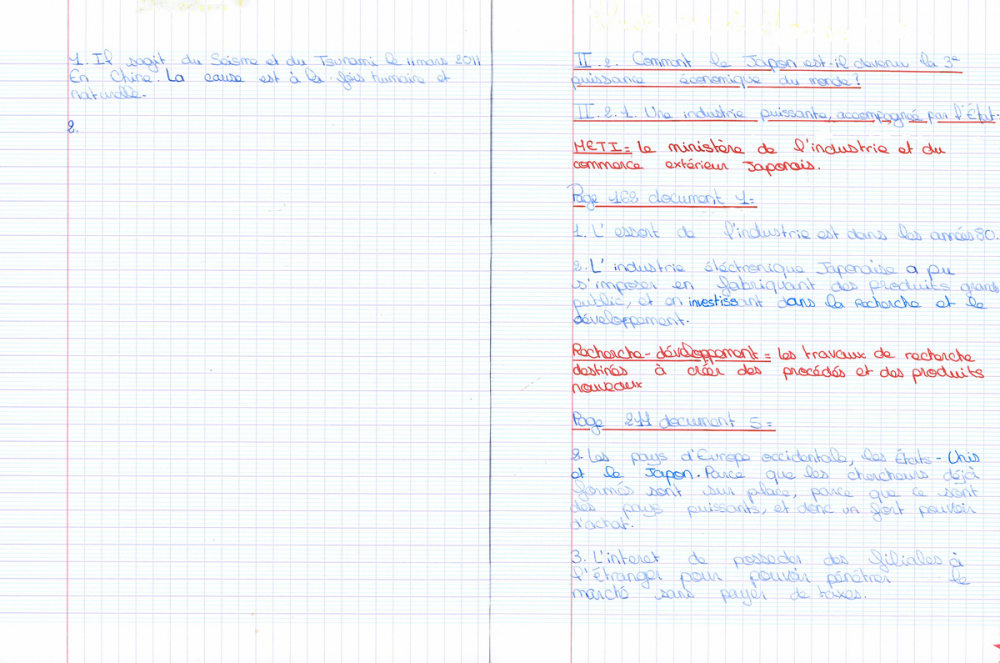 1. Il sagit du Séisme et du Tsunami le 11 mars 2011
En Chine. La cause est à la fois humaine et
naturelle.
2.
II. 2. Comment le Japon est-il devenu la 3e
puissance économique du monde?
II. 2. 1. Une industrie puissante, accompagné par l'État.
METI= le ministère de l'industrie et du
commerce extérieur Japonais.
Page 168 document 1=
1. L'essort de l'industrie est dans les années 80.
2. L'industrie éléctronique Japonaise a pu
s'imposer en fabriquant des produits grand
public, et en investissant dans la recherche et le
développement.
Recherche-développement = les travaux de recherche
destinés à créer des procédés et des produits
nouveaux
Page 211 document 5=
2. Les pays d'Europe occidentale, les États-Unis
et le Japon. Parce que les chercheurs déjà
formés sont sur place, parce que ce sont
des pays puissants, et donc un fort pouvoir
d'achat.
3. L'interet de posseder des filiales à
l'étranger pour pouvoir pénétrer le
marché sans payer de taxes.